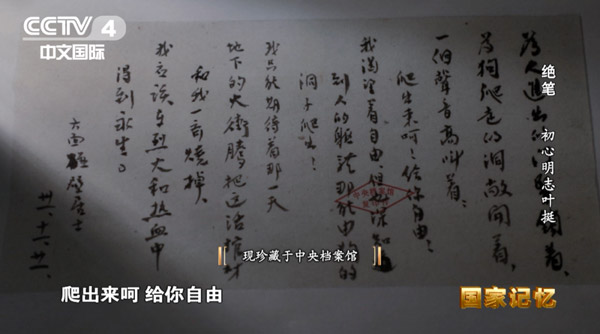 CCTV 4
中文国际
绝笔 初心明志叶挺
為人進出的门 鎖着,
為狗爬走的洞敞開着,
一個聲音高叫着:
爬出来呵!给你自由!
我渴望着自由,但也深知
道人的躯体那能由狗的
洞子爬出!
我只能期待着那一天
地下的火衝腾把這活棺材
和我一齐燒掉,
我应该在烈火和热血中
得到永生。
六面碰壁居士
卅一.十一.廿一.
中央档案馆
现珍藏于中央档案馆
爬出来呵 给你自由
国家记忆